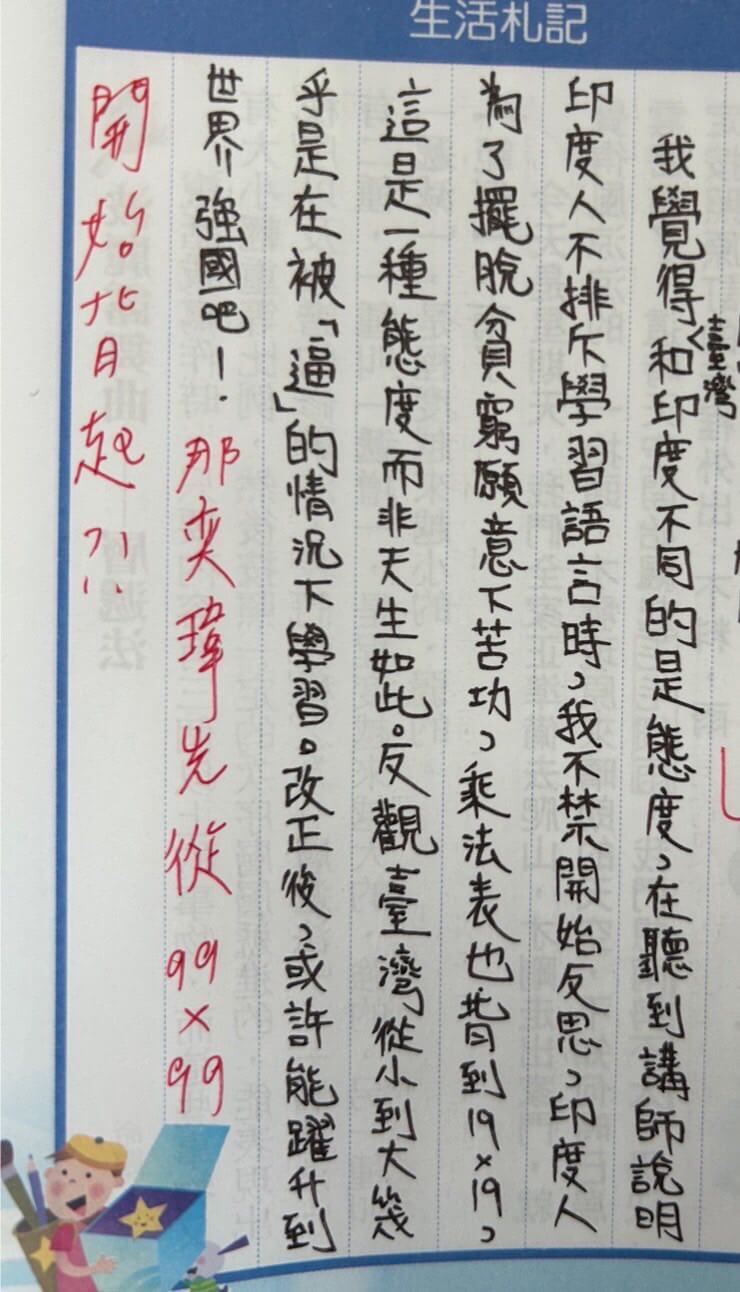 生活札記
我覺得臺灣和印度不同的是態度，在聽到講師說明
印度人不排斥學習語言時，我不禁開始反思，印度人
為了擺脫貧窮願意下苦功，乘法表也背到19×19，
這是一種態度而非天生如此。反觀臺灣從小到大幾
乎是在被「逼」的情況下學習。改正後，或許能躍升到
世界強國吧！那奕瑋先從99×99
開始背起!!